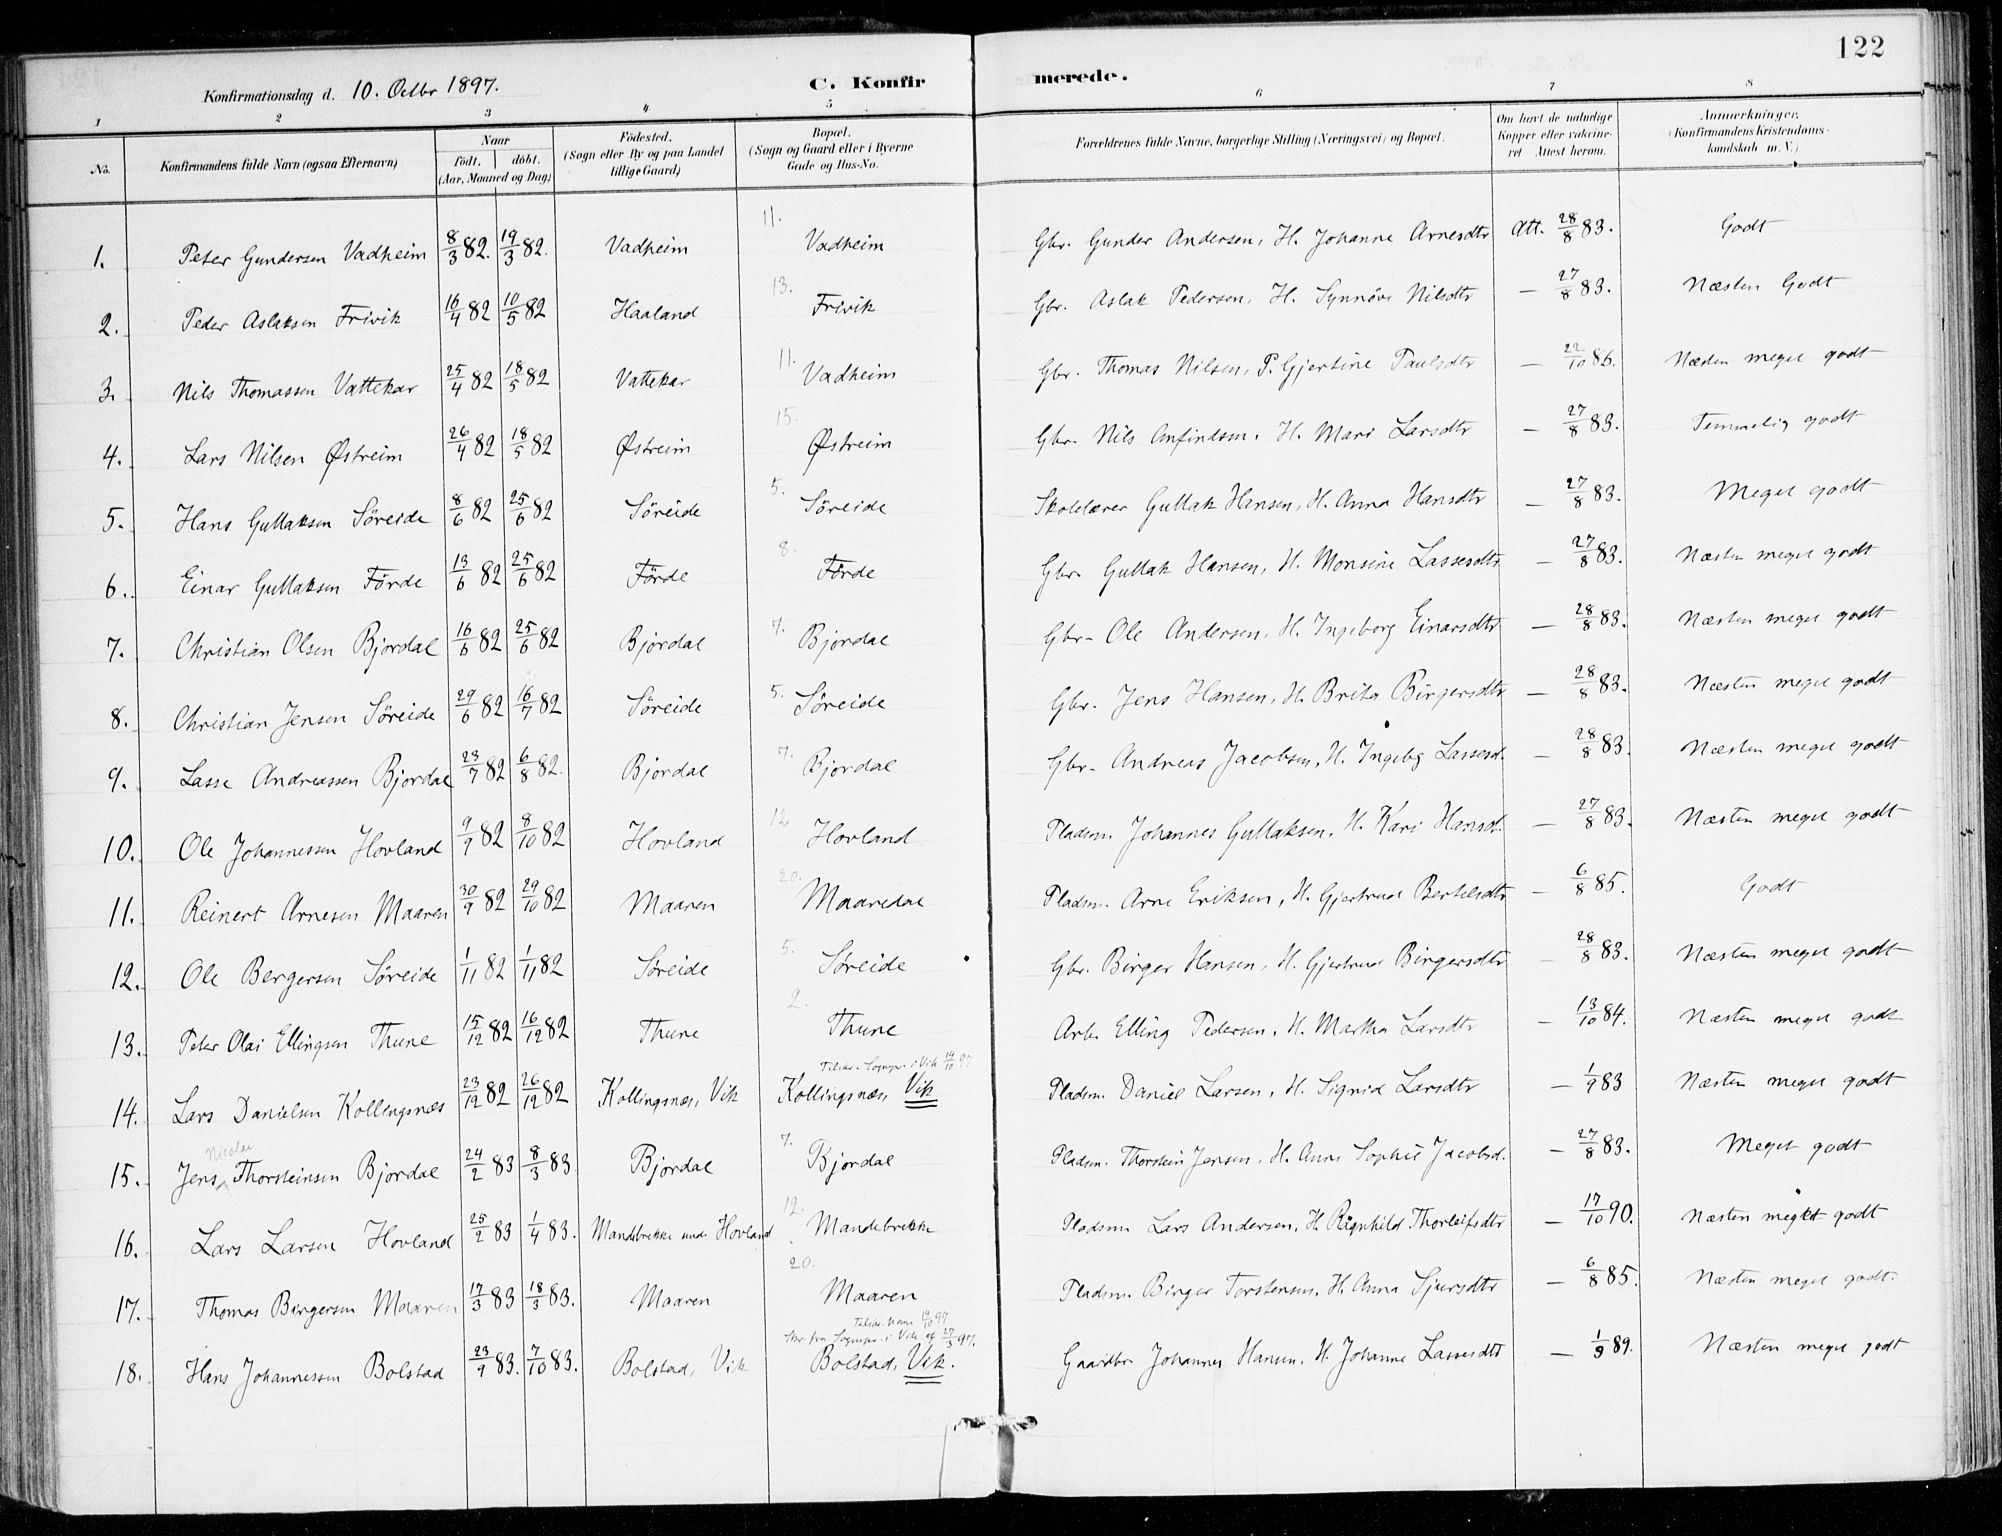 122
Konfirmationsdag d. 10. Octbr 1897. C. Konfirmerede.
1 2 3 4 5 6 7 8
No. Konfirmandens fulde Navn (ogsaa Efternavn) Naar födt. döbt. (Aar, Maaned og Dag) Födested. (Sogn eller By og paa Landet tillige Gaard) Bopæl. (Sogn og Gaard eller i Byerne Gade og Hus-No. Forældrenes fulde Navne, borgerlige Stilling (Næringsvei) og Bopæl. Om havt de naturlige Kopper eller vaksineret Attest herom. Anmærkninger. (Konfirmandens Kristendomskundskab m. V.)
1. Peter Gundersen Vadheim 8/3 82. 19/3 82. Vadheim 11. Vadheim Gbr. Gunder Andersen, H. Johanne Arnesdtr Att. 28/8 83. Godt
2. Peder Aslaksen Frivik 16/4 82 10/5 82 Haaland 13. Frivik Gbr. Aslak Pedersen, H. Synnöve Nilsdtr — 27/8 83. Næsten Godt
3. Nils Thomassen Vattekar 25/4 82 18/5 82 Vattekar 11. Vadheim Gbr. Thomas Nilsen, P. Gjertine Paulsdtr — 22/10 86. Næsten meget godt
4. Lars Nilsen Østreim 26/4 82 18/5 82 Østreim 15. Østreim Gbr. Nils Anfindsen, H. Mari Larsdtr — 27/8 83. Temmelig godt
5. Hans Gullaksen Söreide 8/6 82 25/6 82 Söreide 5. Söreide Skolelærer Gullak Hansen, H. Anna Hansdtr — 27/8 83. Meget godt
6. Einar Gullaksen Förde 13/6 82 25/6 82 Förde 8. Förde Gbr. Gullak Hansen, H. Monsine Lassesdtr — 27/8 83. Næsten meget godt
7. Christian Olsen Bjordal 16/6 82 25/6 82 Bjordal 7. Bjordal Gbr. Ole Andersen, H. Ingeborg Einarsdtr — 28/8 83. Næsten meget godt
8. Christian Jensen Söreide 29/6 82 16/7 82 Söreide 5. Söreide Gbr. Jens Hansen, H. Brita Birgersdtr — 28/8 83. Næsten meget godt
9. Lasse Andreassen Bjordal 23/7 82 6/8 82. Bjordal 7. Bjordal Gbr. Andreas Jacobsen, H. Ingebg Lassesd. — 28/8 83. Næsten meget godt
10. Ole Johannessen Hovland 9/9 82 8/10 82 Hovland 12 Hovland Pladsm. Johannes Gullaksen, H. Kari Hansd. — 27/8 83. Næsten meget godt
11. Reinert Arnesen Maaren 30/9 82 29/10 82 Maaren 20. Maaredal Pladsm. Arne Eriksen, H. Gjertrud Bertelsdtr — 6/8 85. Godt
12. Ole Bergersen Söreide 1/11 82 1/11 82 Söreide 5. Söreide Gbr. Birger Hansen, H. Gjertrud Birgersdtr — 28/8 83. Næsten meget godt
13. Peter Olai Ellingsen Thune 15/12 82 16/12 82 Thune 2. Thune Arb. Elling Pedersen, H. Martha Larsdtr — 13/10 84. Næsten meget godt
Tilskr. Sognepr. i Vik 14/10 97
14. Lars Danielsen Kollingsnæs 23/12 82 26/12 82 Kollingsnæs, Vik Kollingsnæs, Vik Pladsm. Daniel Larsen, H. Sigrid Larsdtr — 1/9 83 Næsten meget godt
Nicolai
15. Jens Thorsteinsen Bjordal 24/2 83 8/3 83 Bjordal 7. Bjordal Pladsm. Thorstein Jensen, H. Anna Sophie Jacobsd. — 27/8 83. Meget godt
16. Lars Larsen Hovland 25/2 83 1/4 83. Mandebrekke under Hovland 12. Mandebrekke Pladsm. Lars Andersen, H. Ragnhild Thorleifsdtr — 17/10 90. Næsten meget godt
17. Thomas Birgersen Maaren 17/3 83 18/3 83. Maaren 20. Maaren Pladsm. Birger Torstensen, H. Anna Sjursdtr — 6/8 85. Næsten meget godt.
Tilskr. ham 14/10 97.
Skr. fra Sognepr. i Vik af 27/3 97.
18. Hans Johannessen Bolstad 23/9 83. 7/10 83. Bolstad, Vik Bolstad, Vik. Gaardbr Johannes Hansen, H. Johanne Lassesdtr — 1/9 89. Næsten meget godt